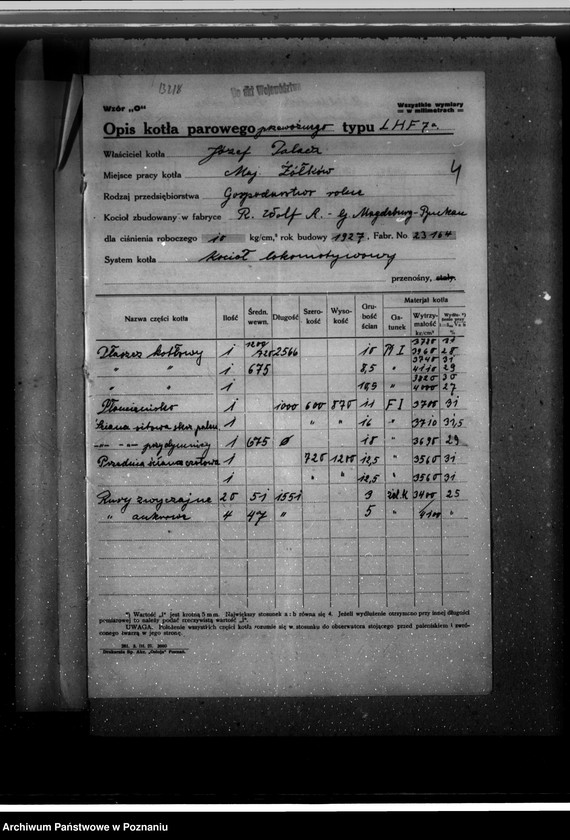 13218
Do akt Województwa
Wzór „O"
Wszystkie wymiary
w milimetrach
Opis kotła parowego przewoźnego typu LHF 7a.
Właściciel kotła Józef Palacz
4
Miejsce pracy kotła Maj. Żółków
Rodzaj przedsiębiorstwa Gospodarstwo rolne
Kocioł zbudowany w fabryce R. Wolf A.-G Magdeburg-Buckau
dla ciśnienia roboczego 10 kg/cm,² rok budowy 1927, Fabr. No 23164
System kotła Kocioł lokomotywowy
przenośny, stały.
Nazwa części kotła Ilość Średn. wewn. Długość Szerokość Wysokość Grubość ścian Materjał kotła
Gatunek Wytrzymałość kg/cm² %
Płaszcz kotłowy 1 1200 720 2566 10 Pł I 3720 3960 31 28
" " 1 675 8,5 " 3740 4110 31 29
" " 1 10,5 " 3820 4000 30 27
Płomienisko 1 1000 600 870 11 F I 3700 31
Ściana sitowa skrz. palen. 1 " " 16 " 3710 31,5
—"— —"— przydymnicy 1 675 ø 18 " 3690 29
Przednia ściana czołowa 1 720 1200 12,5 " 3560 31
1 " " 12,5 " 3560 31
Rury zwyczajne 20 51 1551 3 żel. 3400 25
" ankrowe 4 47 " 5 " 4100 "
"
*) Wartość „l" jest krotną 5 mm. Największy stosunek a : b równa się 4. Jeżeli wydłużenie otrzymano przy innej długości
pomiarowej to należy podać rzeczywistą wartość „l".
UWAGA. Położenie wszystkich części kotła rozumie się w stosunku do obserwatora stojącego przed paleniskiem i zwróconego twarzą w jego stronę.
Drukarnia Sp. Akc. Poznań.
Archiwum Państwowe w Poznaniu